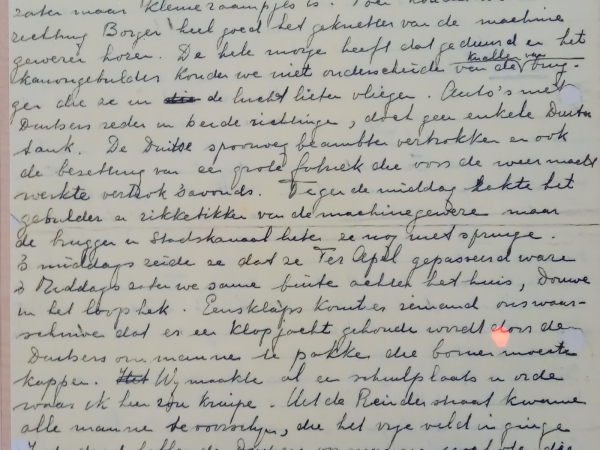 zater maar kleine raampjes is. Toen konden we
richting Borger heel goed het geknetter van de machine
geweren horen. De hele morge heeft dat geduurd en het
knallen van
kanongebulder konde we niet onderscheide van de brug-
gen die ze in die de lucht lieten vliegen. Auto's met
Duitsers reden in beide richtinge, doch geen enkele Duitse
tank. De Duitse spoorweg beambten vertrokken en ook
de bezetting van een grote fabriek die voor de weermacht
werkte vertrok 's avonds. Tegen de middag lekte het
gebulder en rikketikken van de machinegewere maar
de brugge in Stadskanaal lieten ze nog niet springe.
's middags zeide ze dat ze Ter Apel gepasseerd ware
's Middags zaten we samen buite achter het huis, Douwe
in het loophek. Eensklaps komt er iemand ons waar-
schuwe dat er een klopjacht gehoude wordt door de
Duitsers om manne te pakke die bomen moeste
kappen. Het Wij maakte al een schuilplaats in orde
waar ik hen zou kruipe. Uit de Reinder straat kwame
alle manne te voorschijn, die het vrije veld in ginge